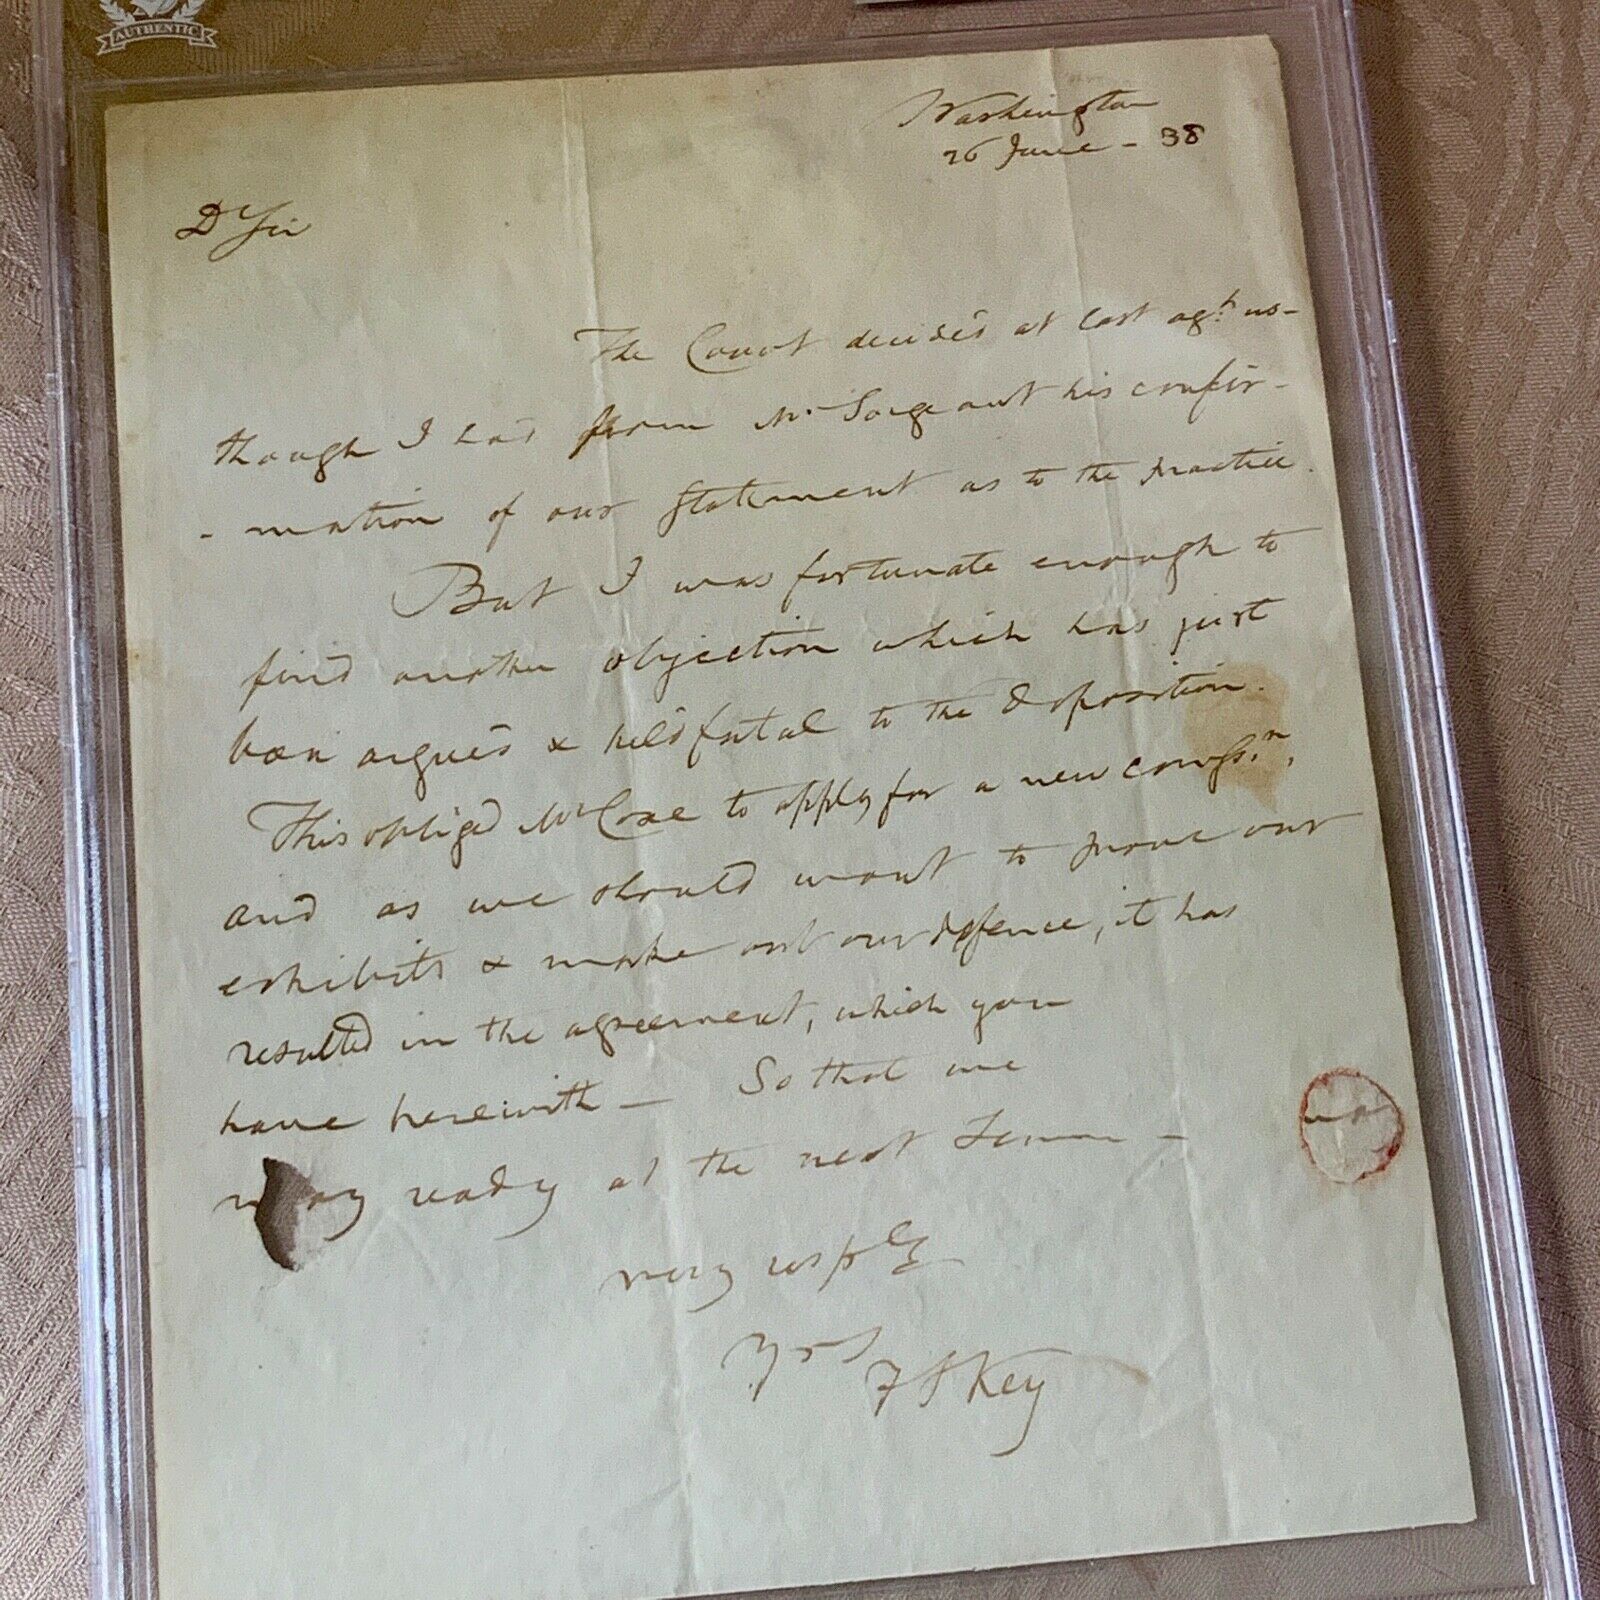 AUTHENTIC
Washington
26 June - 38
Dr Sir
The Court decided at last agt. us-
though I had from Mr Sergeant his confir-
-mation of our statement as to the practice.
But I was fortunate enough to
find another objection which has just
been argued & held fatal to the deposition.
This obliged Mr Coxe to apply for a new comssn.,
and as we should want to prove our
exhibits & make out our defence, it has
resulted in the agreement, which you
have herewith — So that we
may ready at the next Term -
very resply
Yrs
F S Key